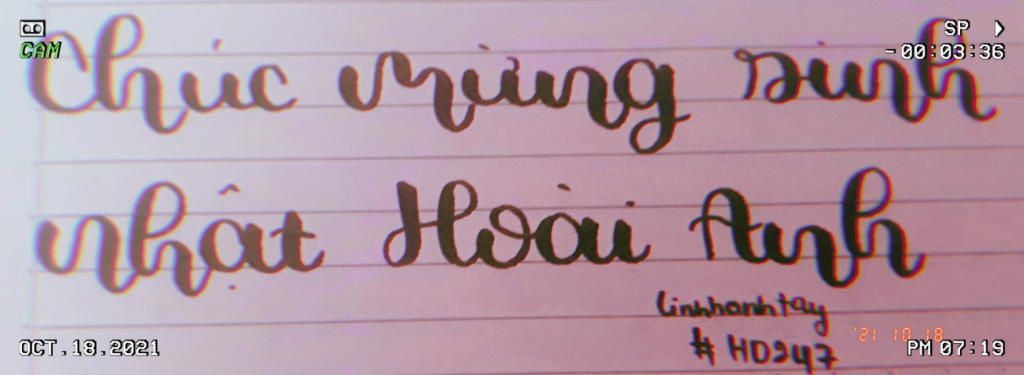 SP
CAM
-00:03:36
Chúc mừng sinh
nhật Hoài Anh
linhhanhtay
# HD247
'21 10 18
OCT.18.2021
PM 07:19